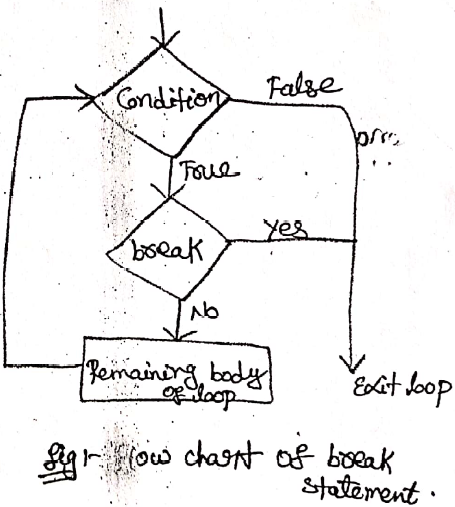 Condition
False
True
break
yes
No
Remaining body
of loop
Exit loop
fig:- flow chart of break
statement.